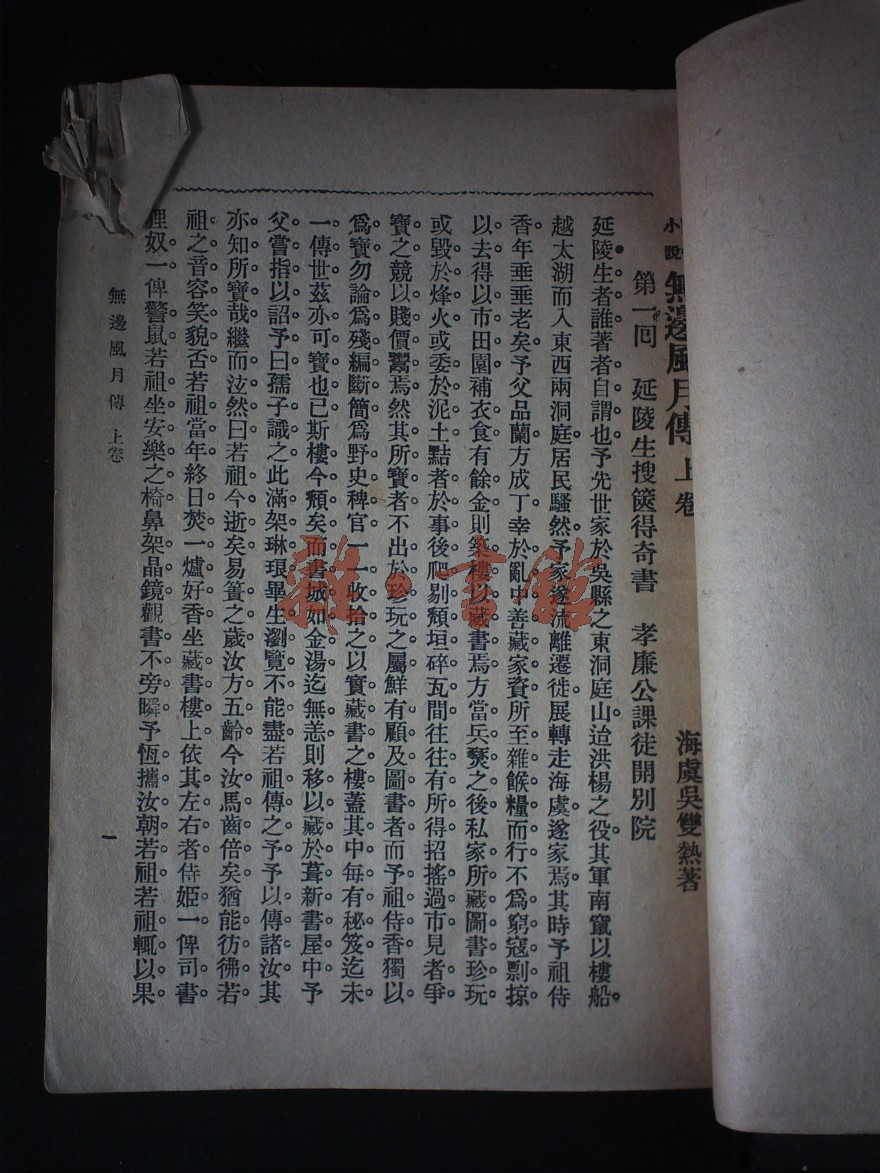 小說 無邊風月傳 上卷
海虞吳雙熱著
第一回 延陵生搜篋得奇書 孝廉公課徒開別院
延陵生者誰著者自謂也予先世家於吳縣之東洞庭山迨洪楊之役其軍南竄以樓船。
越太湖而入東西兩洞庭居民騷然予家遂流離遷徙展轉走海虞遂家焉其時予祖侍
香年垂垂老矣予父品蘭方成丁幸於亂中善藏家資所至雜餱糧而行不爲窮寇剽掠。
以去得以市田園補衣食有餘金則築樓以藏書焉方當兵燹之後私家所藏圖書珍玩
或毀於烽火或委於泥土黠者於事後爬剔頹垣碎瓦間往往有所得招搖過市見者爭
寶之競以賤價鬻焉然其所寶者不出於珍玩之屬鮮有顧及圖書者而予祖侍香獨以
爲寶勿論爲殘編斷簡爲野史稗官一一收拾之以實藏書之樓蓋其中每有秘笈迄未
一傳世茲亦可寶也已斯樓今頹矣而書城如金湯迄無恙則移以藏於葺新書屋中予
父嘗指以詔予曰孺子識之此滿架琳琅畢生瀏覽不能盡若祖傳之予予以傳諸汝其
亦知所寶哉繼而泫然曰若祖今逝矣易簀之歲汝方五齡今汝馬齒倍矣猶能彷彿若
祖之音容笑貌否若祖當年終日焚一爐好香坐藏書樓上依其左右者侍姬一俾司書
狸奴一俾警鼠若祖坐安樂之椅鼻架晶鏡觀書不旁瞬予恆攜汝朝若祖若祖輒以果
無邊風月傳 上卷
一
雜·書館